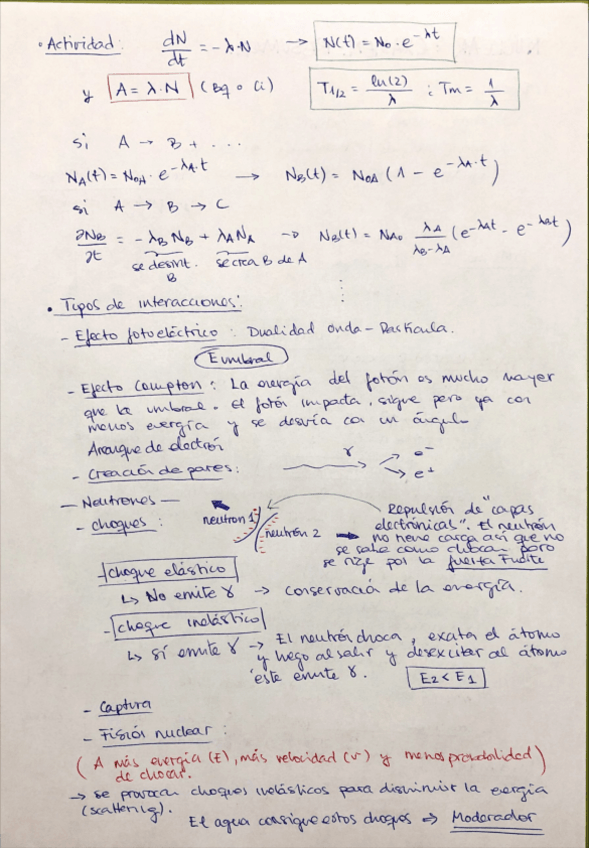 · Actividad: dN/dt = -λ·N → N(t) = N₀·e^(-λt)
y A = λ·N (Bq o Ci) T1/2 = ln(2)/λ ; Tm = 1/λ
si A → B + ...
N_A(t) = N₀A · e^(-λA·t) → N_B(t) = N₀A (1 - e^(-λA·t))
si A → B → C
∂N_B/∂t = -λB N_B + λA N_A → N_B(t) = N_A₀ λA/(λB-λA) (e^(-λAt) - e^(-λBt))
se desint. B se crea B de A
⋮
· Tipos de interacciones:
- Efecto fotoeléctrico : Dualidad onda-Partícula.
Eumbral
- Efecto Compton : La energía del fotón es mucho mayor
que la umbral. El fotón impacta, sigue pero ya con
menos energía y se desvía con un ángulo
Arranque de electrón
- Creación de pares: γ e⁻
e⁺
- Neutrones -
- choques : neutron 1 neutrón 2
Repulsión de "capas
electrónicas". El neutrón
no tiene carga así que no
se sabe como chocan pero
se rige por la fuerza Fuerte
- choque elástico
↳ No emite γ → conservación de la energía.
- choque inelástico
↳ Sí emite γ → El neutrón choca, excita el átomo
y luego al salir y desexcitar al átomo
éste emite γ. E2 < E1
- Captura
- Fisión nuclear :
(A más energía (E), más velocidad (v) y menos probabilidad
de chocar.)
→ se provocan choques inelásticos para disminuir la energía
(scattering).
El agua consigue estos choques ⇒ Moderador